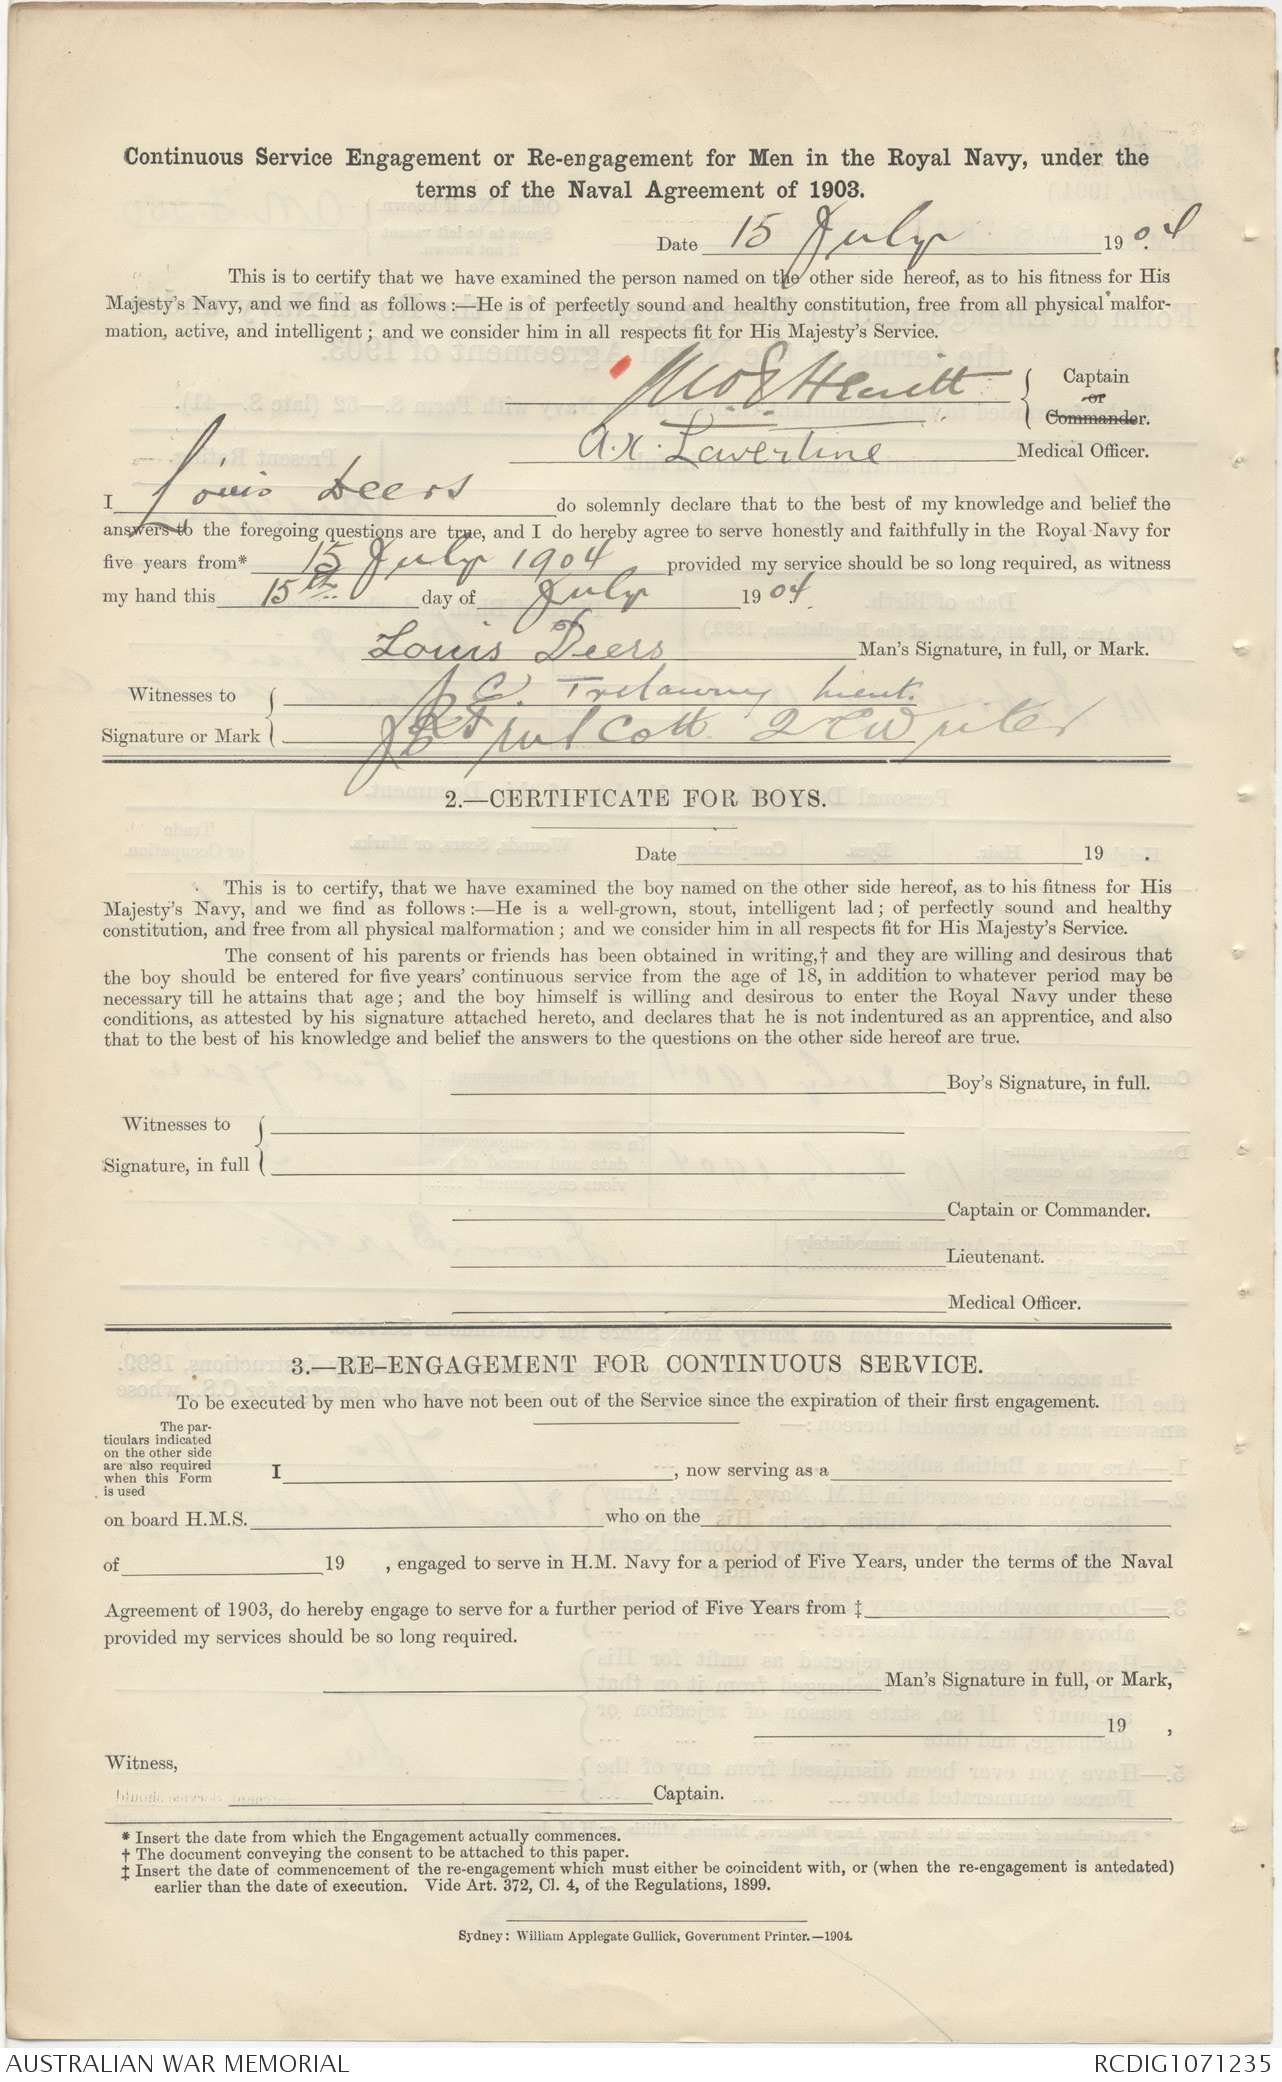 Continuous Service Engagement or Re-engagement for Men in the Royal Navy, under the
terms of the Naval Agreement of 1903.
Date 15 July 1904
This is to certify that we have examined the person named on the other side hereof, as to his fitness for His
Majesty's Navy, and we find as follows:—He is of perfectly sound and healthy constitution, free from all physical malfor-
mation, active, and intelligent; and we consider him in all respects fit for His Majesty's Service.
Hewitt { Captain
or
Commander.
Lavertine Medical Officer.
I Louis Deers do solemnly declare that to the best of my knowledge and belief the
answers to the foregoing questions are true, and I do hereby agree to serve honestly and faithfully in the Royal Navy for
five years from* 15 July 1904 provided my service should be so long required, as witness
my hand this 15th day of July 1904.
Louis Deers Man's Signature, in full, or Mark.
Witnesses to { Trelawny Lieut.
Signature or Mark { Writer
2.—CERTIFICATE FOR BOYS.
Date 19 .
This is to certify, that we have examined the boy named on the other side hereof, as to his fitness for His
Majesty's Navy, and we find as follows:—He is a well-grown, stout, intelligent lad; of perfectly sound and healthy
constitution, and free from all physical malformation; and we consider him in all respects fit for His Majesty's Service.
The consent of his parents or friends has been obtained in writing,† and they are willing and desirous that
the boy should be entered for five years' continuous service from the age of 18, in addition to whatever period may be
necessary till he attains that age; and the boy himself is willing and desirous to enter the Royal Navy under these
conditions, as attested by his signature attached hereto, and declares that he is not indentured as an apprentice, and also
that to the best of his knowledge and belief the answers to the questions on the other side hereof are true.
Boy's Signature, in full.
Witnesses to
Signature, in full
Captain or Commander.
Lieutenant.
Medical Officer.
3.—RE-ENGAGEMENT FOR CONTINUOUS SERVICE.
To be executed by men who have not been out of the Service since the expiration of their first engagement.
The par-
ticulars indicated
on the other side
are also required
when this Form
is used
I , now serving as a
on board H.M.S. who on the
of 19 , engaged to serve in H.M. Navy for a period of Five Years, under the terms of the Naval
Agreement of 1903, do hereby engage to serve for a further period of Five Years from ‡
provided my services should be so long required.
Man's Signature in full, or Mark,
19 ,
Witness,
Captain.
* Insert the date from which the Engagement actually commences.
† The document conveying the consent to be attached to this paper.
‡ Insert the date of commencement of the re-engagement which must either be coincident with, or (when the re-engagement is antedated)
earlier than the date of execution. Vide Art. 372, Cl. 4, of the Regulations, 1899.
Sydney: William Applegate Gullick, Government Printer.—1904.
AUSTRALIAN WAR MEMORIAL RCDIG1071235